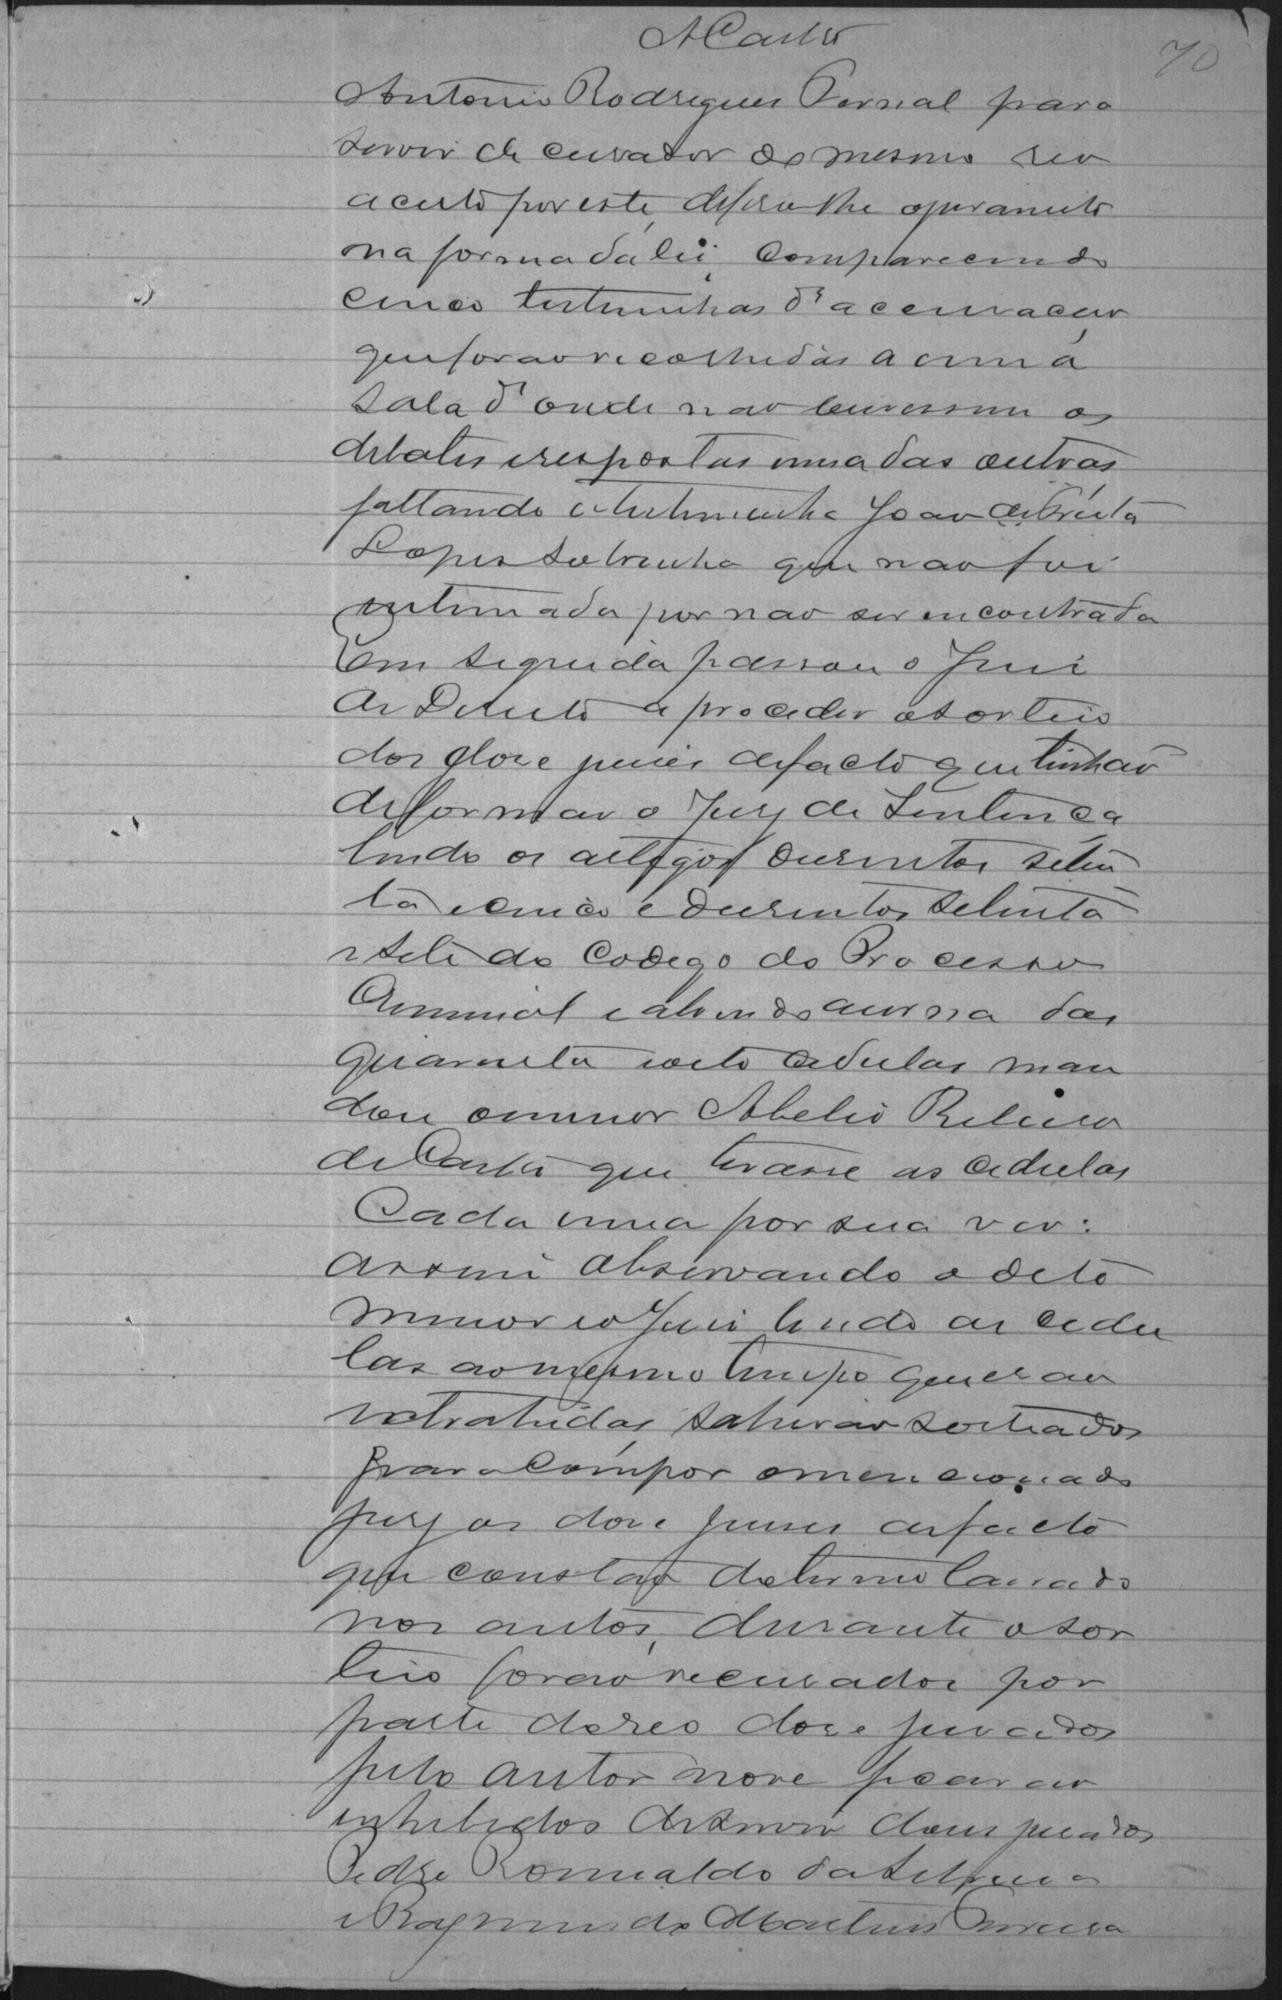 ACastro
70
Antonio Rodrigues Pernal para
servir de curador do mesmo reo
aceito por este, deferio lhe o juramento
na forma da lei; comparecendo
cinco testimunhas d'accusação
que forão recolhidas a uma
sala d'onde não ouvissem os
debates e respostas umas das outras
faltando a testimunha João de
Lopes Sobrinho que não foi
intimada por não ser encontrada
Em seguida passou o Juiz
de Direito a proceder o sorteio
dos doze juizes de facto que tinhão
de formar o Jury de Sentença
lendo os artigos dusentos seten
ta e cinco e dusentos setenta
e sete do Codego do Processo
Criminal e abrindo a urna das
quarenta e oito cedulas man
dou o menor Abelio Ribeiro
de Castro que tirasse as cedulas
Cada uma por sua vez:
assim observando o dito
menor e o Juiz lendo as cedu
las ao mesmo tempo que erão
extrahidas sahirão sorteados
para compor o mencionado
jury os doze juizes de facto
que constão do termo lavrado
nos autos, durante o sor
teio forão recusados por
parte do reo doze jurados
pelo autor nove ficarão
inhibidos de servir dous jurados
Pedro Romualdo da
e Raymundo Martins